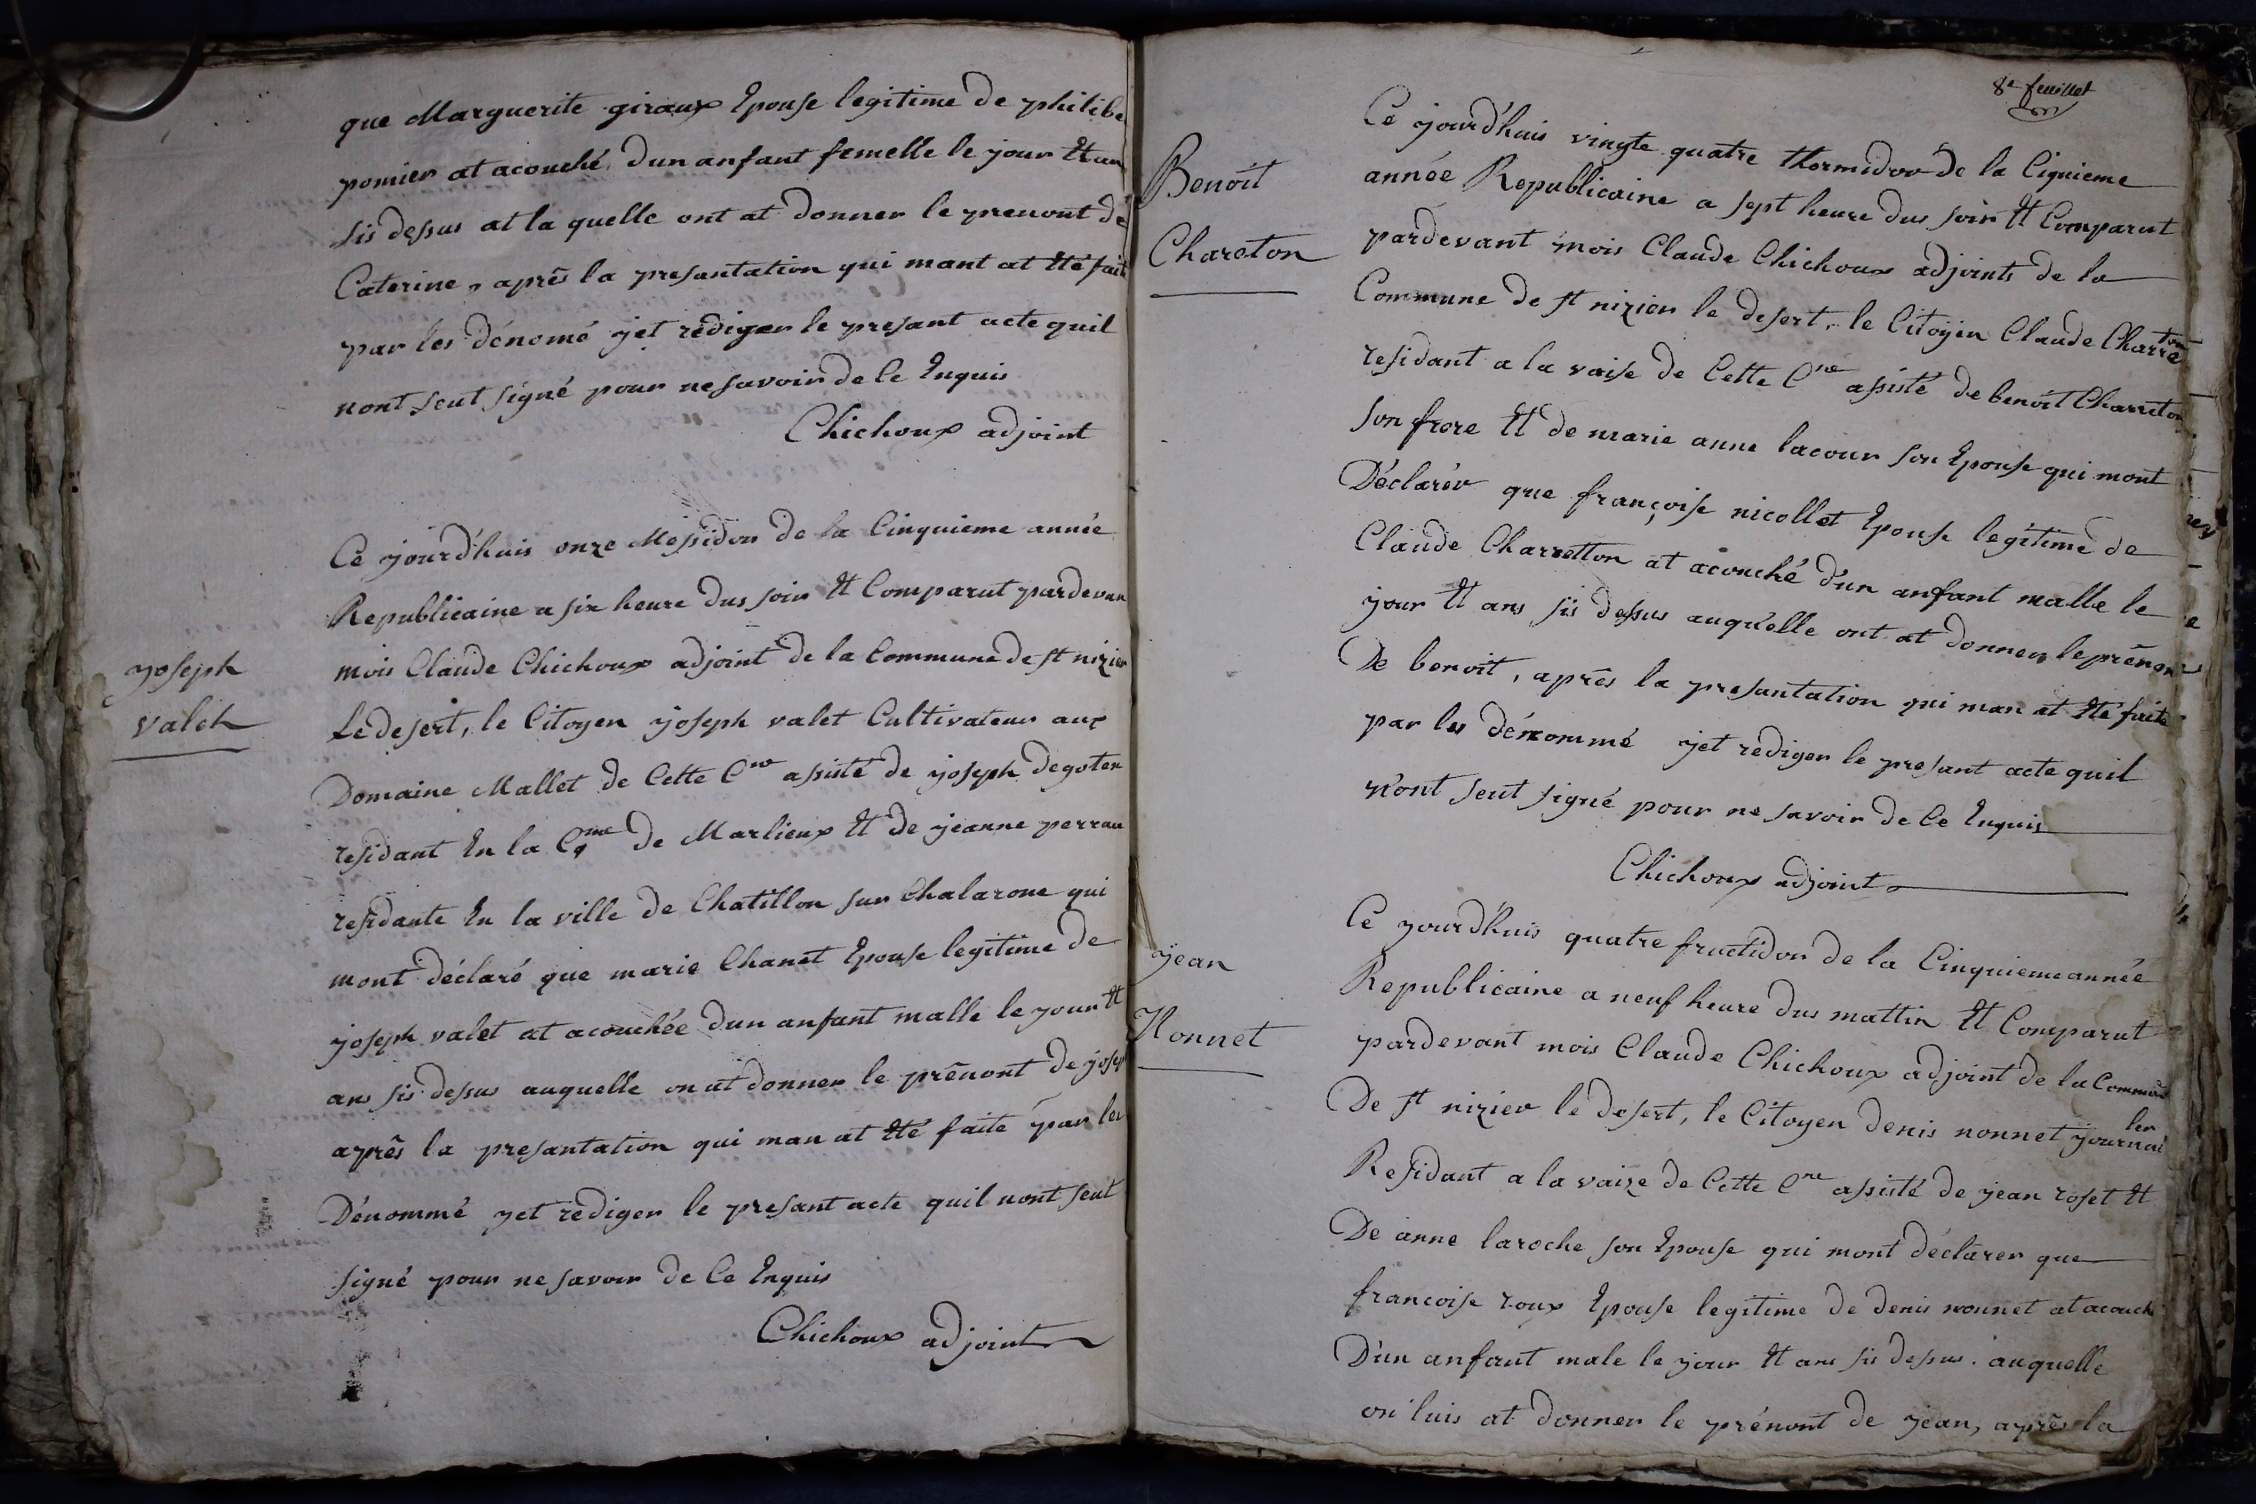 que Marguerite giraux Epouse legitime de philibe
pomier at acouché dun anfant femelle le jour Et an
sis dessus at la quelle ont at donner le prenont de
Caterine, aprés la presantation qui mant at Eté fait
par les dénomé jet rediger le presant acte quil
nont seut signé pour ne savoir de Ce Enquis
Chichoux adjoint
yoseph
valet
Ce jourd'huis onze Messidor de la Cinquieme année
Republicaine a six heure dus soir Et Comparut pardevan
mois Claude Chichoux adjoint de la Commune de st nizier
Le desert, le Citoyen joseph valet Cultivateur aux
Domaine Mallet de Cette Cne assisté de joseph degoter
residant En la Cme de Marlieux Et de jeanne perrau
residante En la ville de Chatillon sur Chalarone qui
mont déclaré que marie Chanet Epouse legitime de
joseph valet at acouchée dun anfant malle le jour Et
ans sis dessus auquelle on at donner le prênont de josep
aprês la presantation qui man at Eté faite par les
Dénommé jet rediger le presant acte quil nont seut
signé pour ne savoir de Ce Enquis
Chichoux adjoint
8e feuillet
Benoit
Chareton
Ce jourd'huis vingte quatre thermidor de la Ciquieme
année Republicaine a sept heure dus soir Et Comparut
pardevant mois Claude Chichoux adjoints de la
Commune de st nizier le desert, le Citoyen Claude Charreton
residant a la vaise de Cette Cne assisté de benoit Charreton
son frere Et de marie anne lacour son Epouse qui mont
Déclarér que françoise nicollet Epouse legitime de
Claude Charretton at acouché d'un anfant malle le
jour Et ans sis dessus auquélle ont at donner le prênom
De benoit, aprês la presantation qui man at Eté faite
par les dénommé jet rediger le presant acte quil
n'ont seut signé pour ne savoir de Ce Enquis
Chichoux adjoint
jean
Nonnet
Ce jourd'huis quatre fructidor de la Cinquieme année
Republicaine a neuf heure dus mattin Et Comparut
pardevant mois Claude Chichoux adjoint de la Commune
De st nizier le desert, le Citoyen denis nonnet journalier
Residant a la vaize de Cette Cne assisté de jean roset Et
De anne laroche son Epouse qui mont déclárer que
francoise roux Epouse legitime de denis nonnet at acouch
D'un anfant male le jour Et ans sis dessus. auquelle
on luis at donner le prénont de jean, aprês la